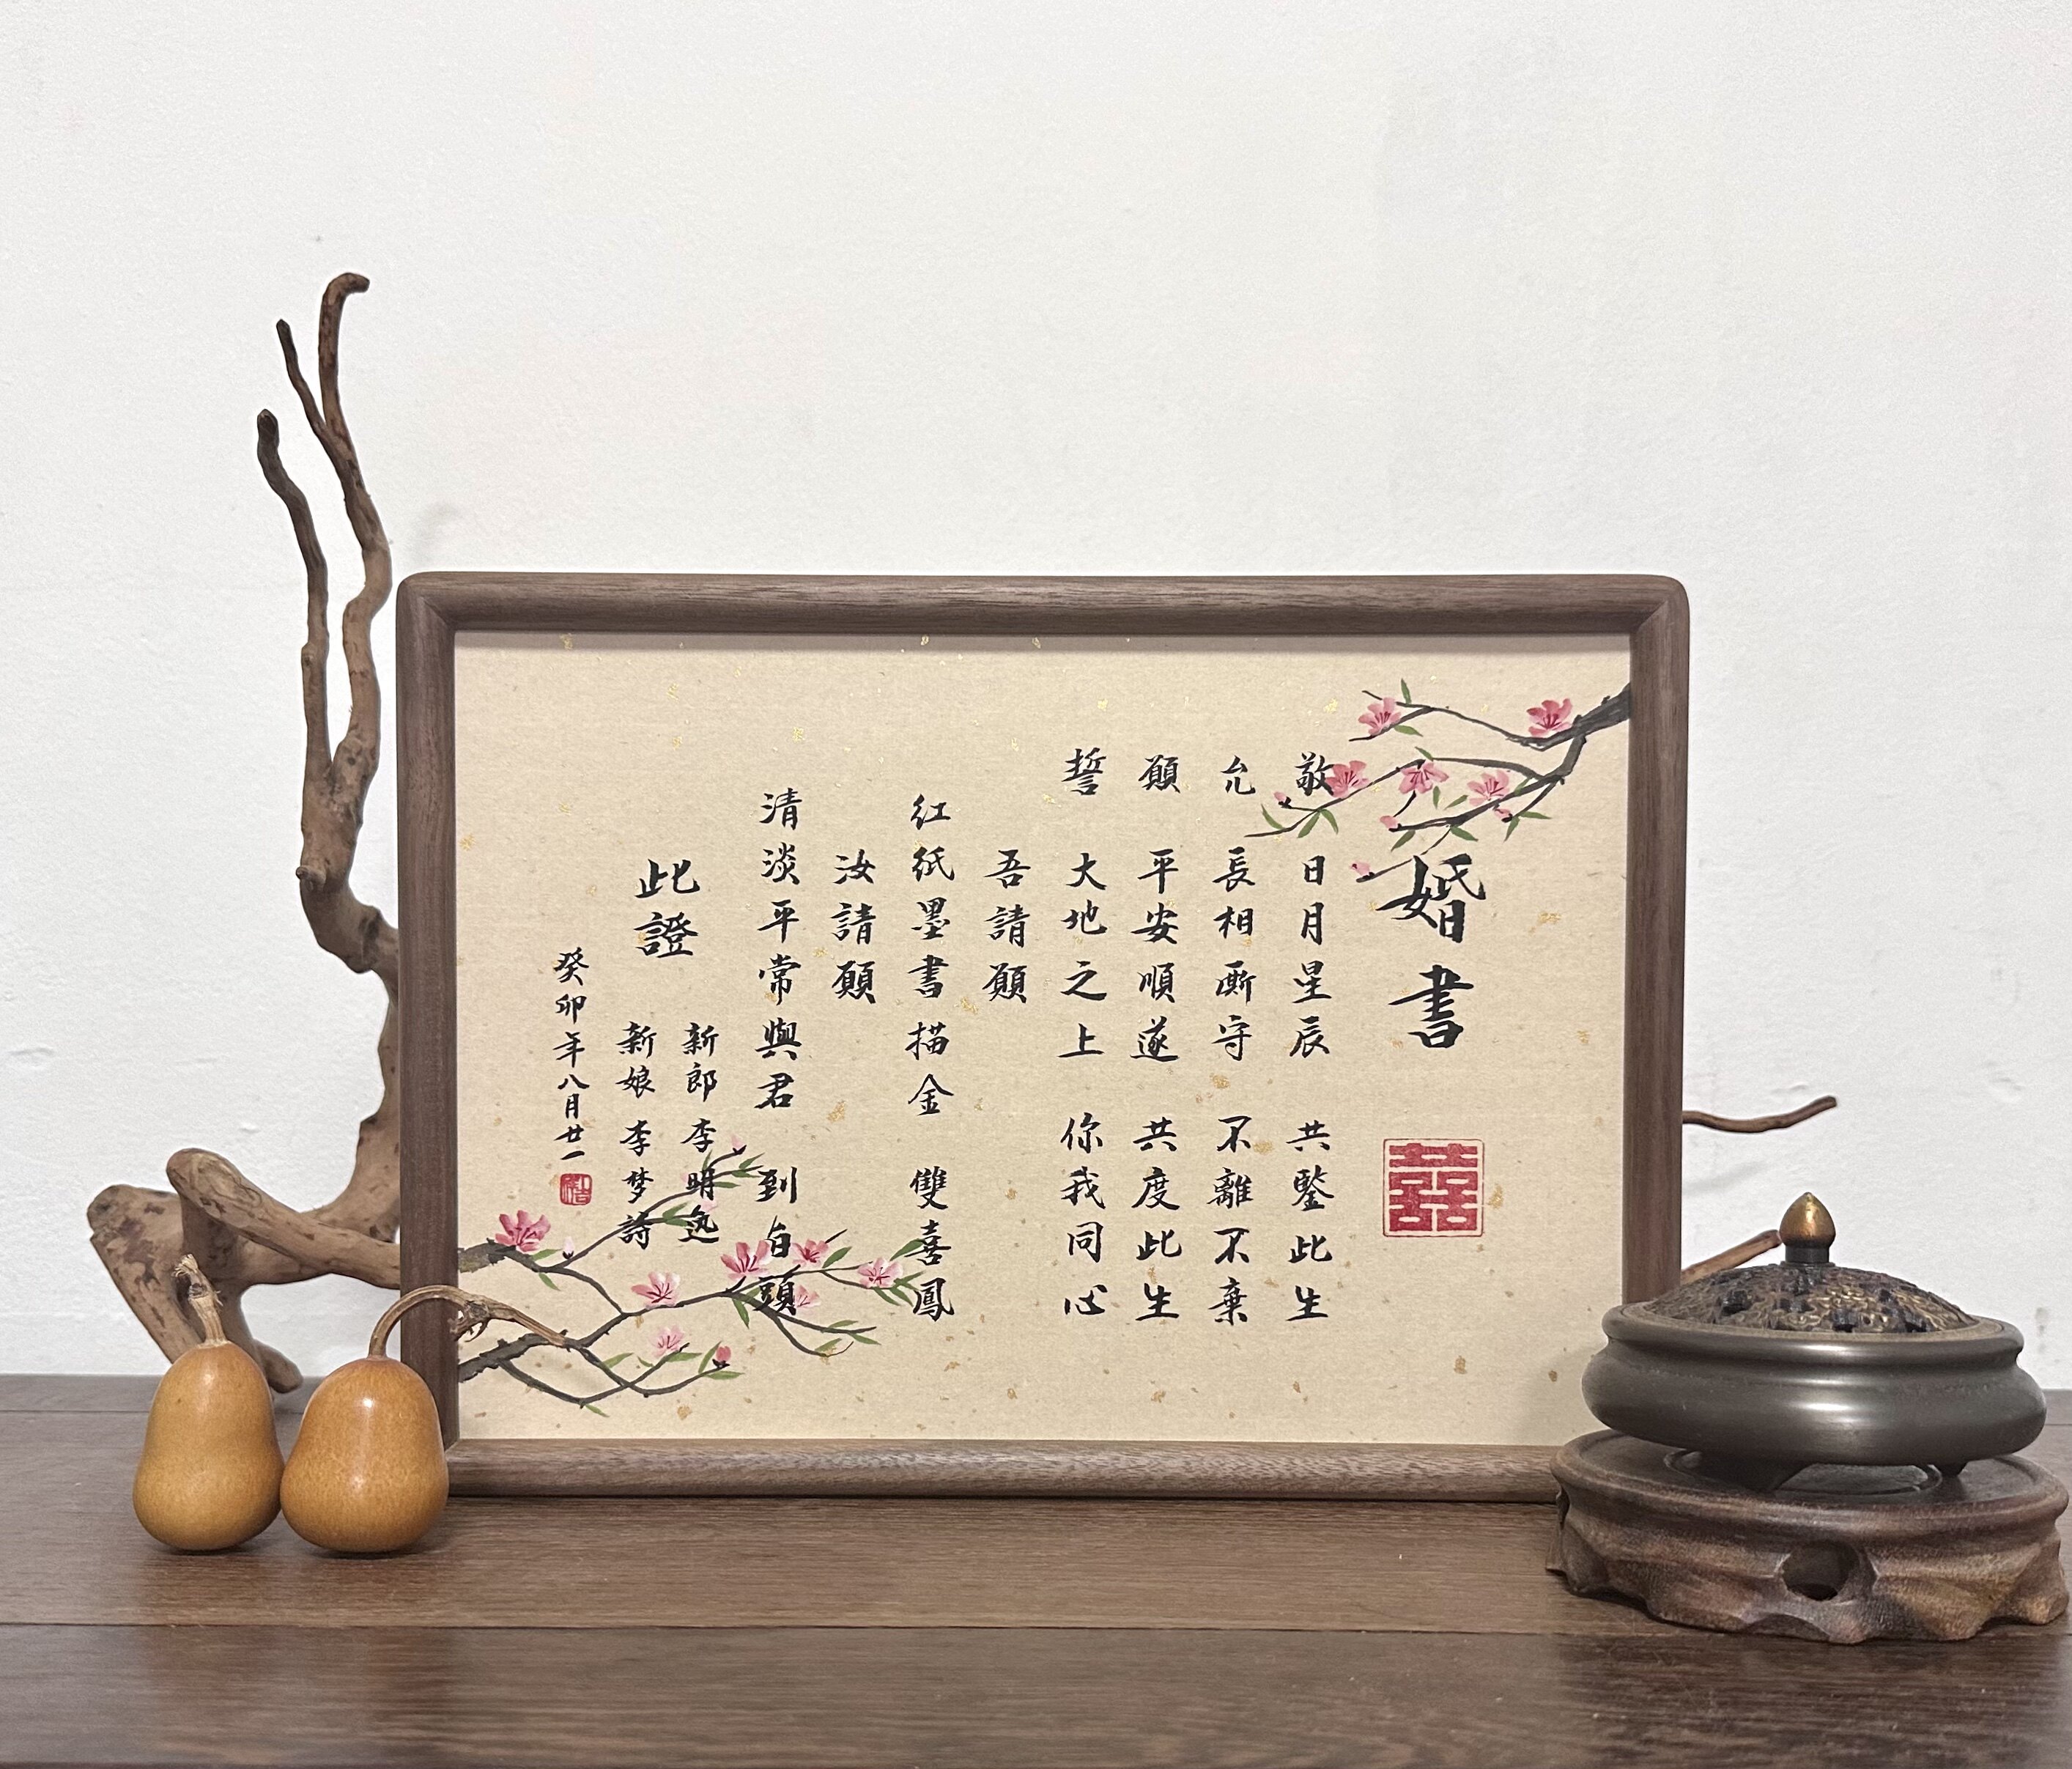 婚書
囍
敬 日月星辰 共鑒此生
允 長相廝守 不離不棄
願 平安順遂 共度此生
誓 大地之上 你我同心
吾請願
红紙墨書描金 雙喜鳳
汝請願
清淡平常與君 到白頭
此證
新郎 李明
新娘 李梦詩
癸卯年八月廿一